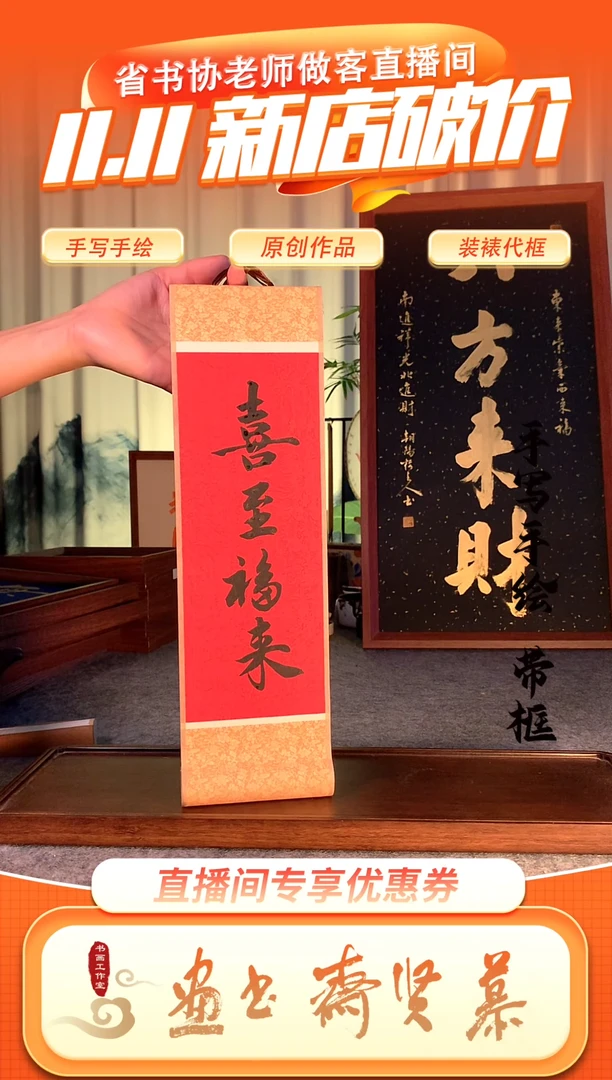 省书协老师做客直播间
11.11 新店破价
手写手绘
原创作品
装裱代框
喜至福来
方来财
东喜紫气西来福
南进祥光北进财
手写手绘 带框
直播间专享优惠券
书画工作室
画书斋贤慕